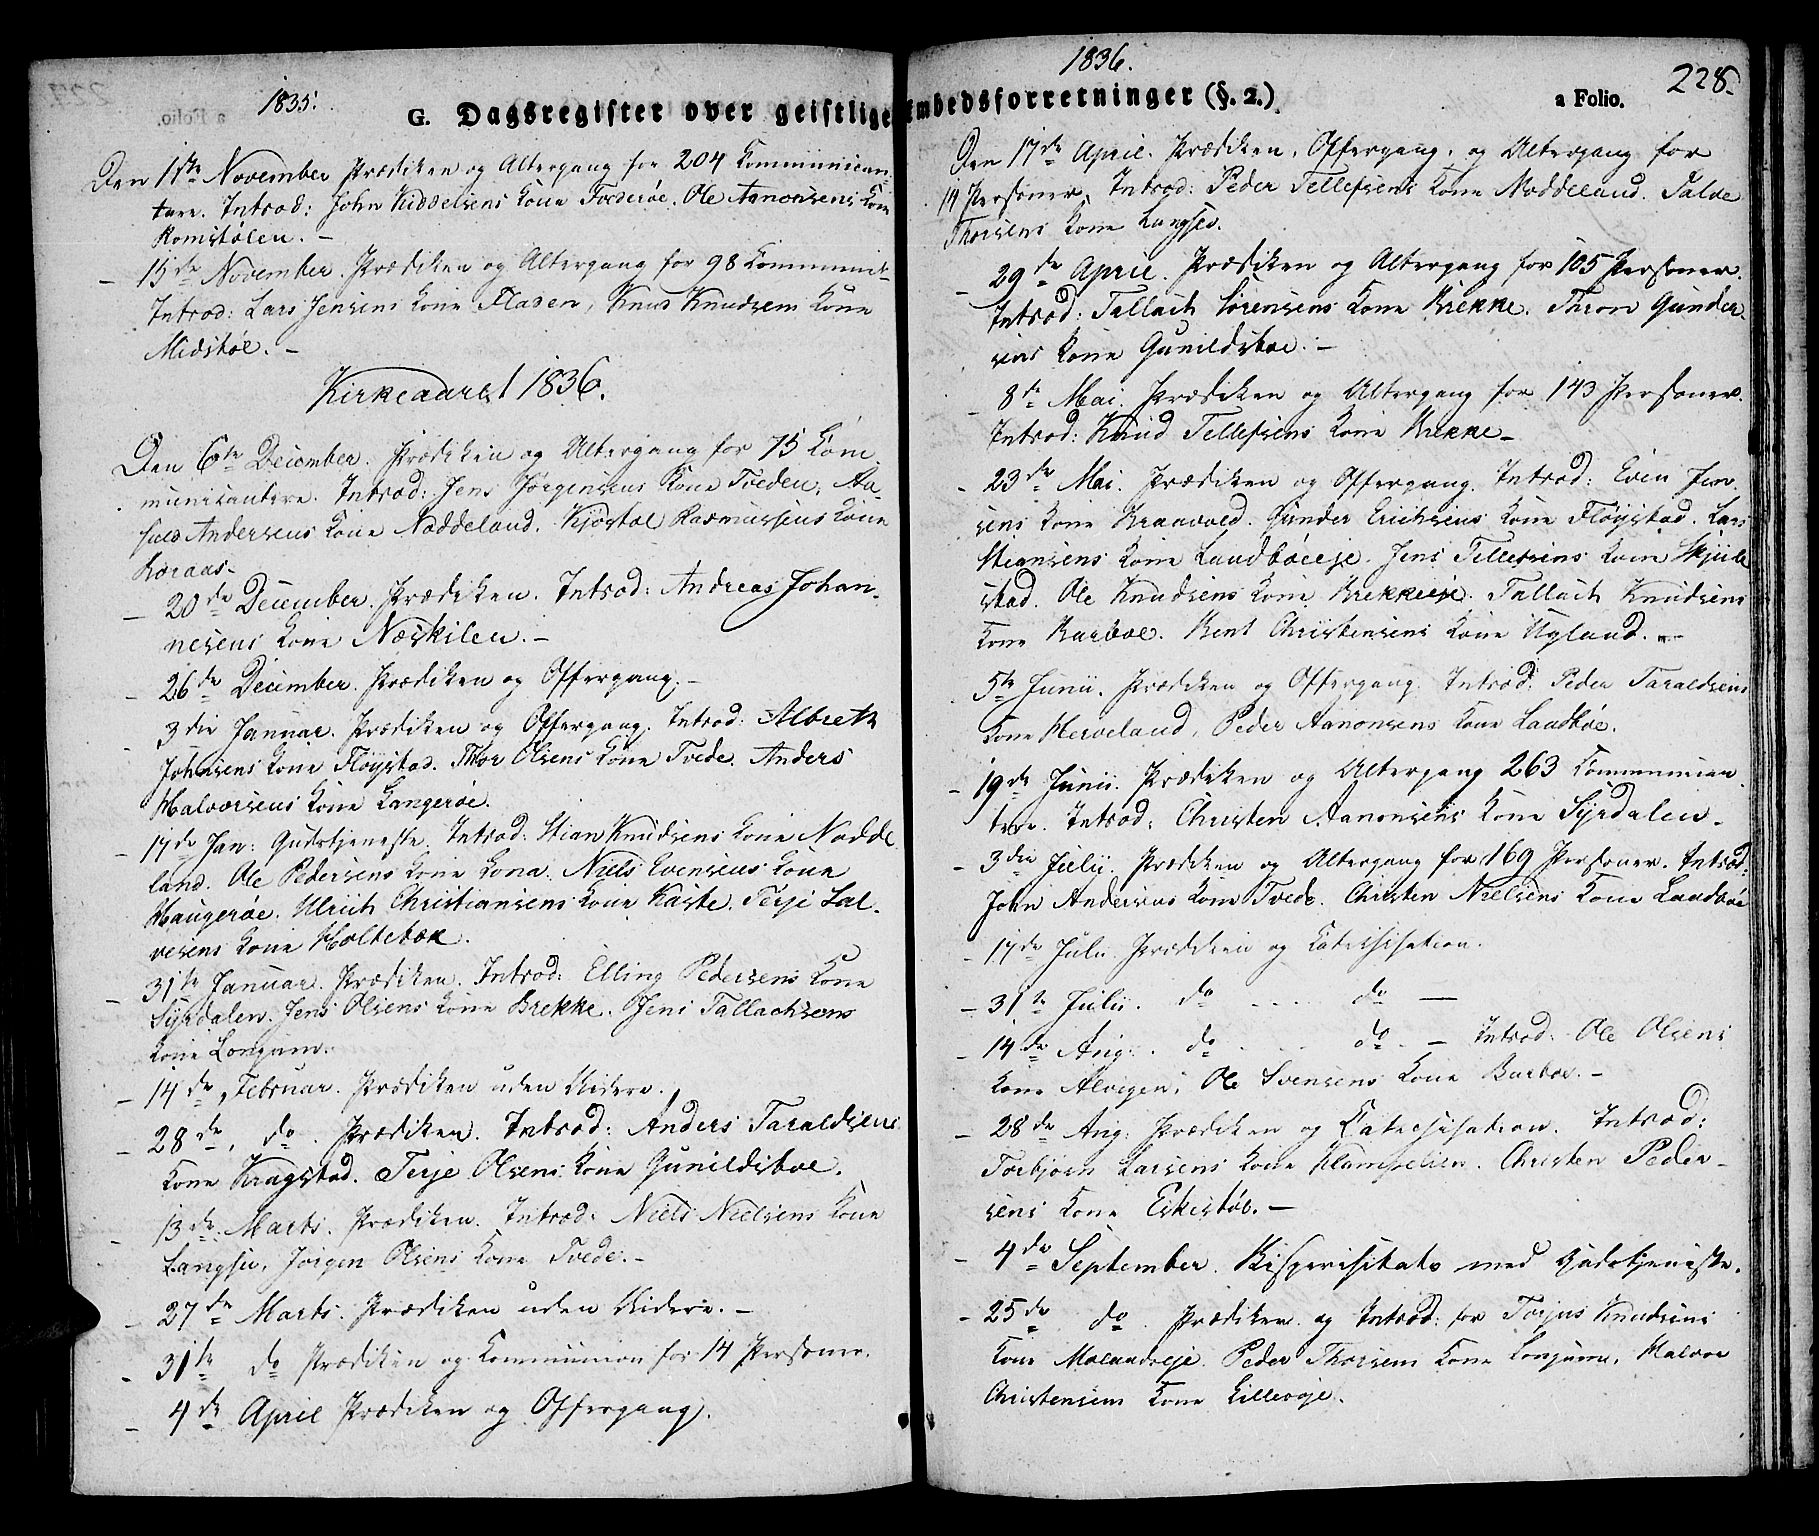 1835.
G. Dagsregister over geistlige
Den 1ste November Prædiken og Altergang for 204 Communican
tere. Introd: John Kiddelsens Kone Froderøe. Ole Aanonsens Kone
Romstølen. –
– 15de November. Prædiken og Altergang for 98 Communik
Introd: Lars Jensens Kone Fladen, Knud Knudsens Kone
Midbøe. –
Kirkeaaret 1836.
Den 6te December. Prædiken og Altergang for 75 Com
municantere. Introd: Jens Jørgensens Kone Tveden, Aa
Andersens Kone Noddeland. Kjøstol Rasmussens Kone
Boraas –
– 20de December. Prædiken. Introd: Andreas Johan-
nesens Kone Næskilen. –
– 26de December. Prædiken og Offergang. –
– 3die Januar. Prædiken og Offergang. Introd: Albreth
Johnsens Kone Fløystad. Thor Olsens Kone Tvede. Anders
Halvorsens Kone Langerøe.
– 17de Jan: Gudstjeneste. Introd: Stian Knudsens Kone Nodde
land. Ole Pedersens Kone Lona. Niels Evensens Kone
Haugerøe. Ulrich Christiansens Kone Kaste. Terje Sal-
vesens Kone Holtebæk.
– 31te Januar. Prædiken. Introd: Elling Pedersens Kone
Syrdalen. Jens Olsens Kone Brekke. Jens Tallachsens
Kone Longum.
– 14de Februar. Prædiken uden Videre.
– 28de, do. Prædiken. Introd: Anders Taraldsens
Kone Kragstad. Terje Olsens Kone Gunildsboe.
– 13de Marts. Prædiken. Introd: Niels Nielsens Kone
Langsev, Jørgen Olsens Kone Tvede. –
– 27de Marts. Prædiken uden Videre. –
– 31te do Prædiken og Communion for 14 Personer.
– 4de April Prædiken og Offergang.
1836.
Embedsforretninger (§. 2.)
a Folio.
228.
Den 17de April. Prædiken, Offergang, og Altergang for
14 Personer. Introd: Peder Tellefsens Kone Noddeland. Salve
Thorsens Kone Langsev.
– 29de April. Prædiken og Altergang for 105 Personer.
Introd: Tallach Sørensens Kone Brekke. Thron Gunder-
sens Kone Gunildsboe. –
– 8de Mai. Prædiken og Altergang for 143 Personer.
Introd: Knud Tellefsens Kone Brekke –
– 23de Mai. Prædiken og Offergang. Introd: Even Jen
sens Kone Kranvold. Gunder Erichsens Kone Fløystad. Lars
Stiansens Kone Landbøeeje. Jens Tellefsens Kone Skjule
stad. Ole Knudsens Kone Brekkeeje. Tallach Knudsens
Kone Barboe. Bent Christensens Kone Ugland. –
5te Junii. Prædiken og Offergang. Introd: Peder Taraldsens
Kone Herveland, Peder Aanonsens Kone Landbøe.
– 19de Junii. Prædiken og Altergang 263 Communican
tere. Introd: Christen Aanonsens Kone Syrdalen.
– 3die Julii. Prædiken og Altergang for 169 Personer. Introd:
John Andersens Kone Tvede. Christen Nielsens Kone Landbøe
– 17de Juli Prædiken og Catechisation.
– 31te Julii. do .... do –
– 14de Aug: do ... do. – Introd: Ole Olsens
Kone Alvigen, Ole Svensens Kone Barboe. –
– 28de Aug: Prædiken og Catechisation. Introd:
Torbjørn Larsens Kone Christen Peder-
sens Kone Eskestøe. –
– 4de September. Bispevisitats med Gudstjeneste.
– 25de do. Prædiken og Introd: for Torjus Knudsens
Kone Molandseje. Peder Thorsens Kone Longum, Halvor
Christensens Kone Lilleeeje.